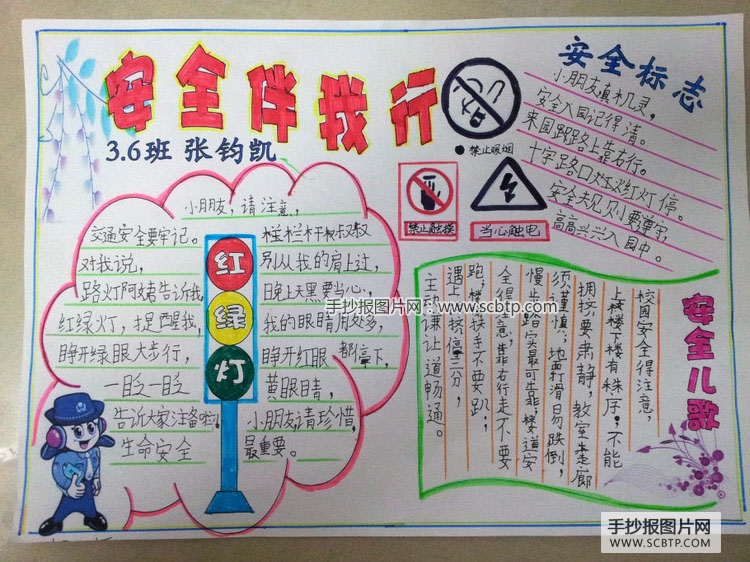 安全伴我行
3.6班 张钧凯
小朋友，请注意，
交通安全要牢记。
对我说，
路灯阿姨告诉我
红绿灯，提醒我，
睁开绿眼大步行，
一眨一眨
告诉大家注备啦！
生命安全
栏杆叔叔
别从我的肩上过，
晚上天黑要当心，
我的眼睛用处多，
睁开红眼 都停下，
黄眼睛，
小朋友请珍惜，
最重要。
巧
绿
灯
禁止吸烟
禁止触摸
当心触电
安全标志
小朋友真机灵，
安全入园记得清。
来园路上靠右行。
十字路口红灯停。
安全规则要遵守，
高高兴兴入园中。
安全儿歌
校园安全得注意，
上楼下楼有秩序；不能
拥挤要肃静，教室走廊
须谨慎；地面打滑易跌倒，
慢步踏实最可靠；楼道安
全得注意，靠右行走不要
跑；楼梯扶手不要趴；
遇上拥挤停三分，
主动谦让道畅通。
手抄报图片网：www.scbtp.com
手抄报图片网
WWW.SCBTP.COM